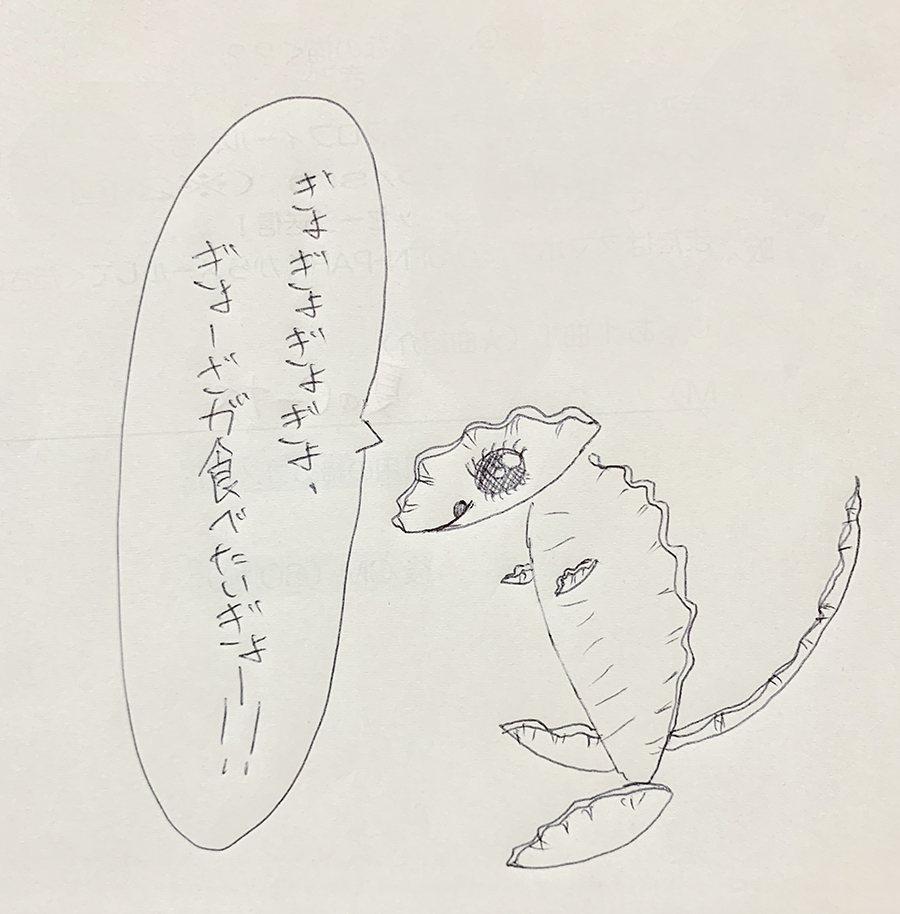 ぎょぎょぎょぎょ、
ぎょーざが食べたいぎょー!!